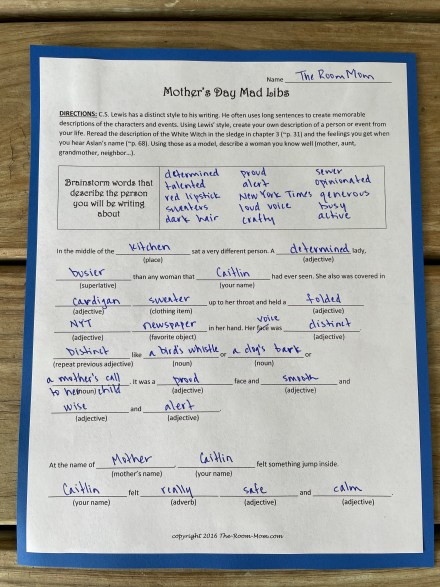 Name The Room Mom
Mother's Day Mad Libs
DIRECTIONS: C.S. Lewis has a distinct style to his writing. He often uses long sentences to create memorable
descriptions of the characters and events. Using Lewis' style, create your own description of a person or event from
your life. Reread the description of the White Witch in the sledge in chapter 3 (~p. 31) and the feelings you get when
you hear Aslan's name (~p. 68). Using those as a model, describe a woman you know well (mother, aunt,
grandmother, neighbor...).
Brainstorm words that
describe the person
you will be writing
about
determined proud sewer
talented alert opinionated
red lipstick New York Times generous
sweaters loud voice busy
dark hair crafty active
In the middle of the kitchen sat a very different person. A determined lady,
(place) (adjective)
busier than any woman that Caitlin had ever seen. She also was covered in
(superlative) (your name)
cardigan sweater up to her throat and held a folded
(adjective) (clothing item) (adjective)
NYT newspaper in her hand. Her face voice was distinct,
(adjective) (favorite object) (adjective)
Distinct like a bird's whistle or a dog's bark or
(repeat previous adjective) (noun) (noun)
a mother's call to her child. It was a proud face and smooth and
(noun) (adjective) (adjective)
wise and alert.
(adjective) (adjective)
At the name of Mother, Caitlin felt something jump inside.
(mother's name) (your name)
Caitlin felt really safe and calm.
(your name) (adverb) (adjective) (adjective)
copyright 2016 The-Room-Mom.com